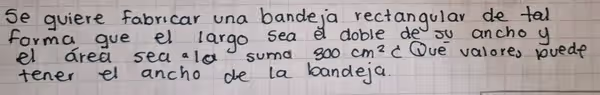 Se quiere fabricar una bandeja rectangular de tal
forma que el largo sea el doble de su ancho y
el área sea a la suma 800 cm² ¿ Que valores puede
tener el ancho de la bandeja.